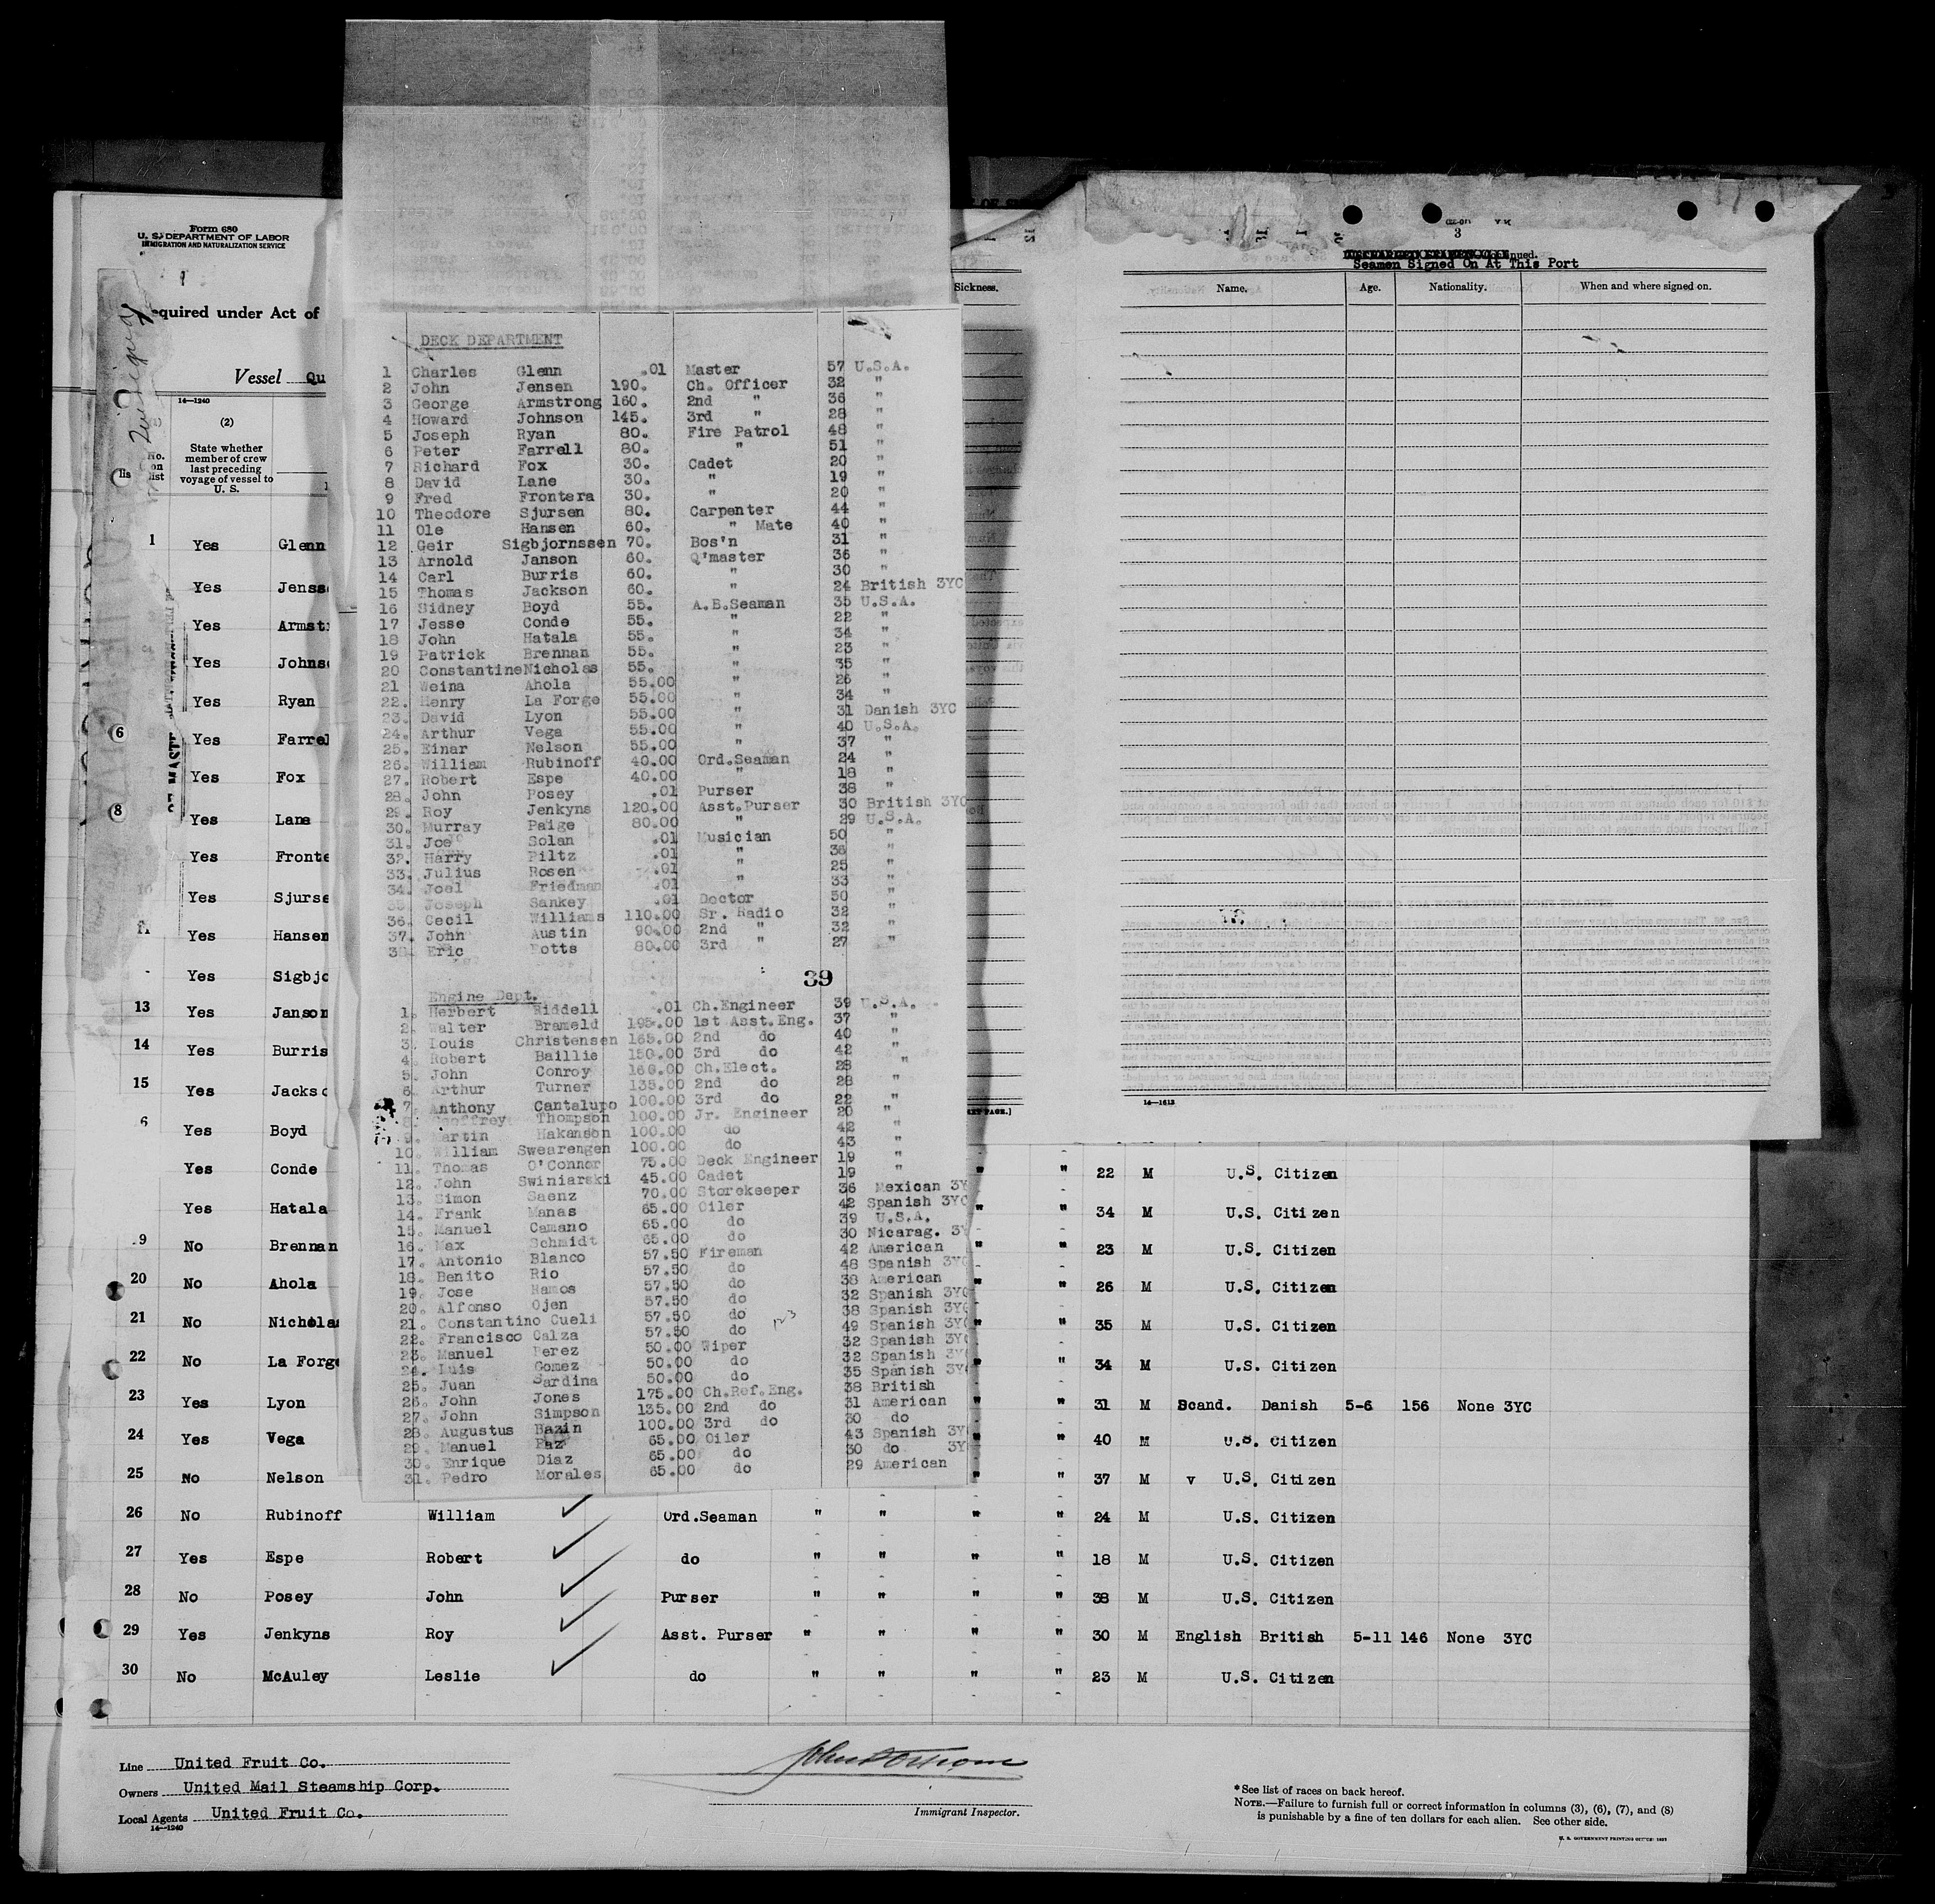 Form 680
U. S. DEPARTMENT OF LABOR
IMMIGRATION AND NATURALIZATION SERVICE
equired under Act of
Vessel Qu
14—1240
(2)
No. on list
State whether
member of crew
last preceding
voyage of vessel to
U. S.
1 Yes Glenn
Yes Jens
Yes Armst
Yes Johns
Yes Ryan
6 Yes Farrel
Yes Fox
8 Yes Lane
Yes Fronte
Yes Sjurse
11 Yes Hansen
Yes Sigbjo
13 Yes Janson
14 Yes Burris
15 Yes Jackso
6 Yes Boyd
Yes Conde
Yes Hatala
9 No Brennan
20 No Ahola
21 No Nichola
22 No La Forg
23 Yes Lyon
24 Yes Vega
25 No Nelson
DECK DEPARTMENT
1 Charles Glenn .01 Master 57 U.S.A.
2 John Jensen 190. Ch. Officer 32 "
3 George Armstrong 160. 2nd " 36 "
4 Howard Johnson 145. 3rd " 28 "
5 Joseph Ryan 80. Fire Patrol 48 "
6 Peter Farrell 80. " 51 "
7 Richard Fox 30. Cadet 20 "
8 David Lane 30. " 19 "
9 Fred Frontera 30. " 20 "
10 Theodore Sjursen 80. Carpenter 44 "
11 Ole Hansen 60. " Mate 40 "
12 Geir Sigbjornssen 70. Bos'n 31 "
13 Arnold Janson 60. Q'master 36 "
14 Carl Burris 60. " 30 "
15 Thomas Jackson 60. " 24 British 3YC
16 Sidney Boyd 55. A.B.Seaman 35 U.S.A.
17 Jesse Conde 55. " 22 "
18 John Hatala 55. " 34 "
19 Patrick Brennan 55. " 23 "
20 Constantine Nicholas 55. " 35 "
21 Weina Ahola 55.00 " 26 "
22. Henry La Forge 55.00 " 34 "
23. David Lyon 55.00 " 31 Danish 3YC
24. Arthur Vega 55.00 " 40 U.S.A.
25. Einar Nelson 55.00 " 37 "
26. William Rubinoff 40.00 Ord.Seaman 24 "
27. Robert Espe 40.00 " 18 "
28. John Posey .01 Purser 38 "
29. Roy Jenkyns 120.00 Asst.Purser 30 British 3YC
30. Murray Paige 80.00 " 29 U.S.A.
31. Joe Solan .01 Musician 50 "
32. Harry Piltz .01 " 36 "
33. Julius Rosen .01 " 25 "
34. Joel Friedman .01 " 33 "
35 Joseph Sankey .01 Doctor 50 "
36. Cecil Williams 110.00 Sr. Radio 32 "
37. John Austin 90.00 2nd " 32 "
38 Eric Potts 80.00 3rd " 27 "
39
Engine Dept.
1. Herbert Riddell .01 Ch.Engineer 39 U.S.A.
2. Walter Brameld 195.00 1st Asst.Eng. 37 "
3. Louis Christensen 165.00 2nd do 40 "
4. Robert Baillie 150.00 3rd do 42 "
5. John Conroy 160.00 Ch.Elect. 28 "
6. Arthur Turner 135.00 2nd do 28 "
7. Anthony Cantalupo 100.00 3rd do 22 "
8. Geoffrey Thompson 100.00 Jr. Engineer 20 "
9. Martin Hakanson 100.00 do 42 "
10. William Swearengen 100.00 do 43 "
11. Thomas O'Connor 75.00 Deck Engineer 19 "
12. John Swiniarski 45.00 Cadet 19 "
13. Simon Saenz 70.00 Storekeeper 36 Mexican 3Y
14. Frank Manas 65.00 Oiler 42 Spanish 3YC
15. Manuel Camano 65.00 do 39 U.S.A.
16. Max Schmidt 65.00 do 30 Nicarag. 3Y
17. Antonio Blanco 57.50 Fireman 42 American
18. Benito Rio 57.50 do 48 Spanish 3YC
19. Jose Ramos 57.50 do 38 American
20. Alfonso Ojen 57.50 do 32 Spanish 3YC
21. Constantino Cueli 57.50 do 38 Spanish 3YC
22. Francisco Calza 57.50 do 49 Spanish 3YC
23. Manuel Perez 50.00 Wiper 32 Spanish 3YC
24. Luis Gomez 50.00 do 32 Spanish 3Y
25. Juan Sardina 50.00 do 35 Spanish 3Y
26. John Jones 175.00 Ch.Ref.Eng. 38 British
27. John Simpson 135.00 2nd do 31 American
28. Augustus Bazin 100.00 3rd do 30 do
29. Manuel Paz 65.00 Oiler 43 Spanish 3Y
30. Enrique Diaz 65.00 do 30 do 3Y
31. Pedro Morales 65.00 do 29 American
Sickness.
3
nued.
Seamen Signed On At This Port
Name. Age. Nationality. When and where signed on.
14—1613
" " 22 M U.S. Citizen
" " 34 M U.S. Citizen
" " 23 M U.S. Citizen
" " 26 M U.S. Citizen
" " 35 M U.S. Citizen
" " 34 M U.S. Citizen
" " 31 M Scand. Danish 5-6 156 None 3YC
" " 40 M U.S. Citizen
" " 37 M v U.S. Citizen
26 No Rubinoff William Ord.Seaman " " " " 24 M U.S. Citizen
27 Yes Espe Robert do " " " " 18 M U.S. Citizen
28 No Posey John Purser " " " " 38 M U.S. Citizen
29 Yes Jenkyns Roy Asst. Purser " " " " 30 M English British 5-11 146 None 3YC
30 No McAuley Leslie do " " " " 23 M U.S. Citizen
Line United Fruit Co.
Owners United Mail Steamship Corp.
Local Agents United Fruit Co.
14—1240
Immigrant Inspector.
*See list of races on back hereof.
NOTE.—Failure to furnish full or correct information in columns (3), (6), (7), and (8)
is punishable by a fine of ten dollars for each alien. See other side.